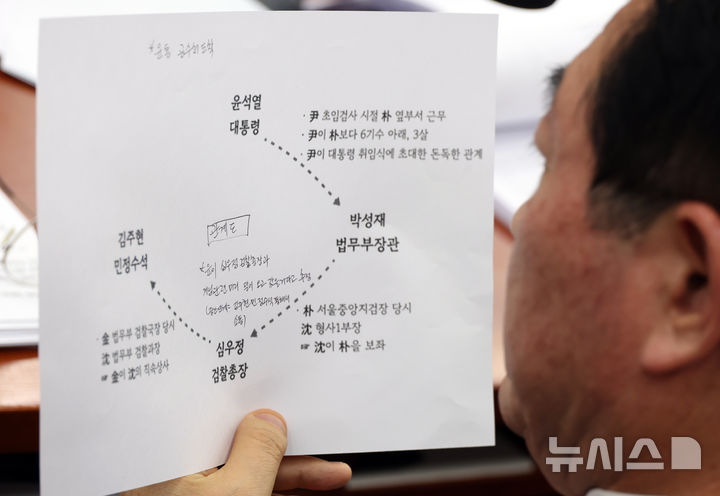 윤석열
대통령
· 尹 초임검사 시절 朴 옆부서 근무
· 尹이 朴보다 6기수 아래, 3살
· 尹이 대통령 취임식에 초대한 돈독한 관계
박성재
법무부장관
김주현
민정수석
관계도
· 朴 서울중앙지검장 당시
沈 형사1부장
☞ 沈이 朴을 보좌
· 金 법무부 검찰국장 당시
沈 법무부 검찰과장
☞ 金이 沈의 직속상사
심우정
검찰총장
뉴시스